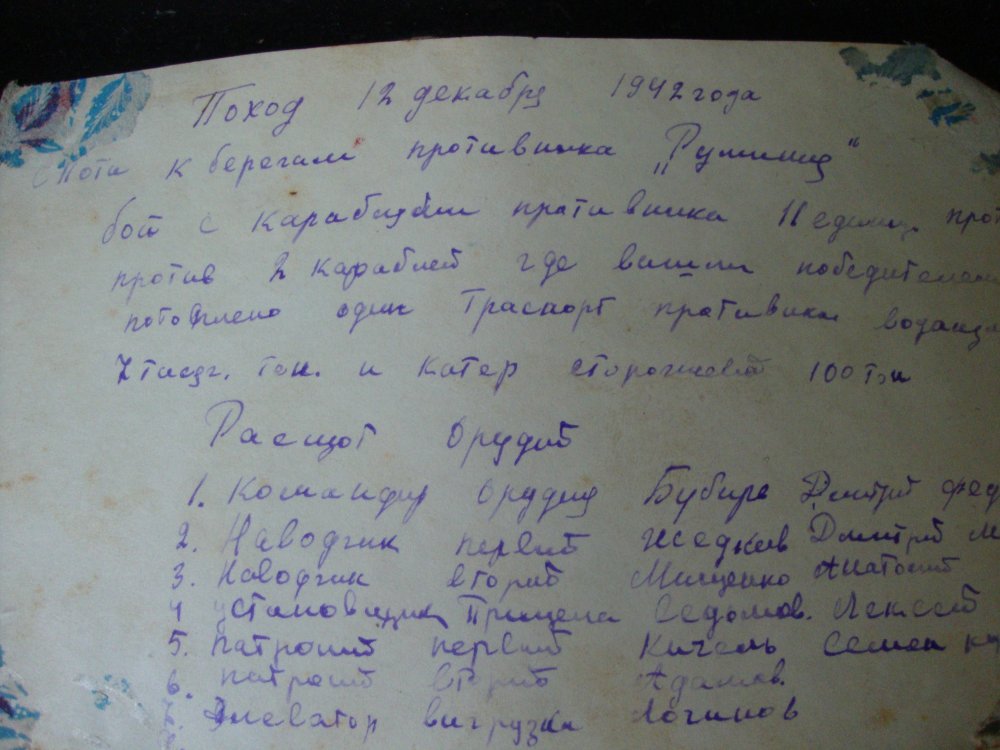 Поход 12 декабря 1942 года
к берегам противника „Румыния“
бой с карабцями пративника
против 2 караблей где вышли победителем
потоплено один Траспорт пративника
7 тысяч. тон. и Катер сторожевой 100 тон
Расщот Орудий
1. Командир Орудия Бубырь Дмитрий Фед
2. Наводчик первый Дмитрий М
3. Наводчик вторый Мищенко Анатолий
4 установщик Прицела Седомов. Алексей
5. Патроный первый Кичель Семен
6. патроный вторый Адамов.
7. Элеватор выгрузка Логинов